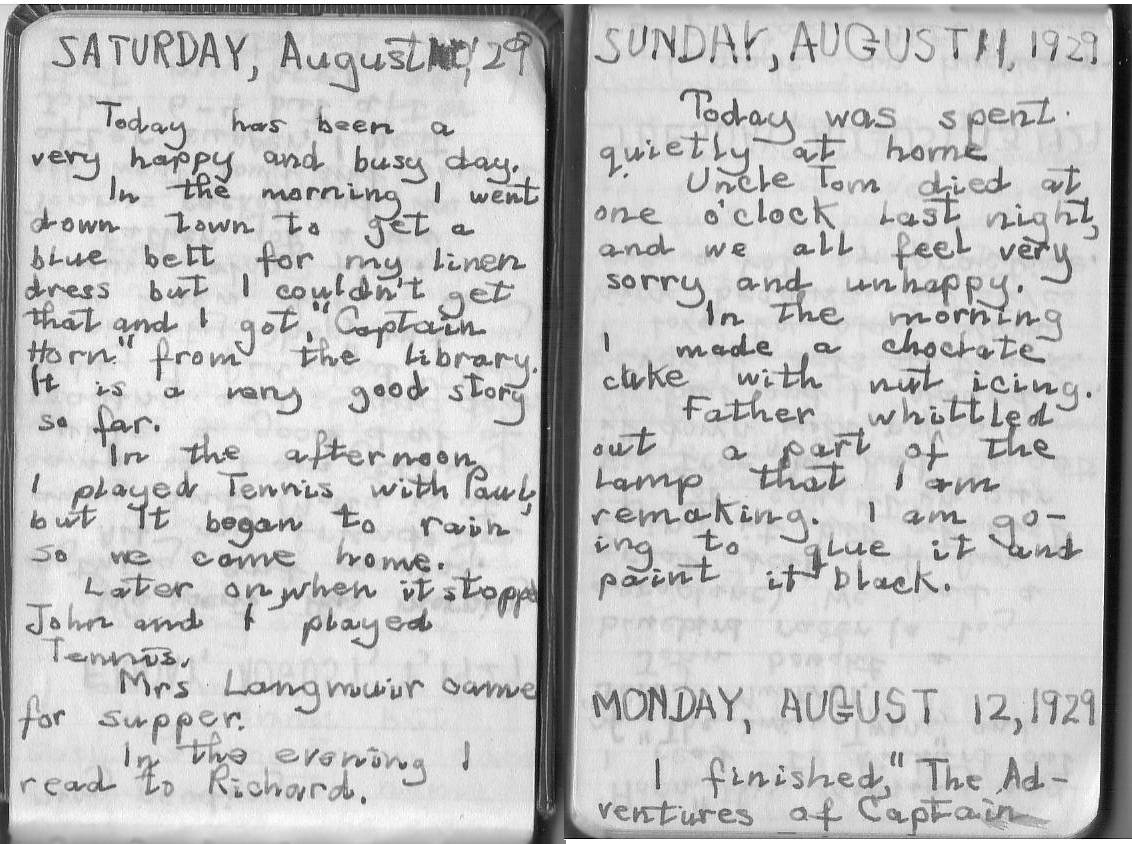 SATURDAY, August '29
Today has been a
very happy and busy day.
In the morning I went
down town to get a
blue belt for my linen
dress but I couldn't get
that and I got, "Captain
Horn" from the library.
It is a very good story
so far.
In the afternoon
I played Tennis with Paul,
but It began to rain
so we came home.
Later on, when it stopped
John and I played
Tennis.
Mrs Langmuir came
for supper.
In the evening I
read to Richard.
SUNDAY, AUGUST 11, 1929
Today was spent.
quietly at home
Uncle Tom died at
one o'clock last night,
and we all feel very
sorry and unhappy.
In the morning
I made a choclate
cake with nut icing.
Father whittled
out a part of the
lamp that I am
remaking. I am go-
ing to glue it and
paint it black.
MONDAY, AUGUST 12, 1929
I finished, "The Ad-
ventures of Captain